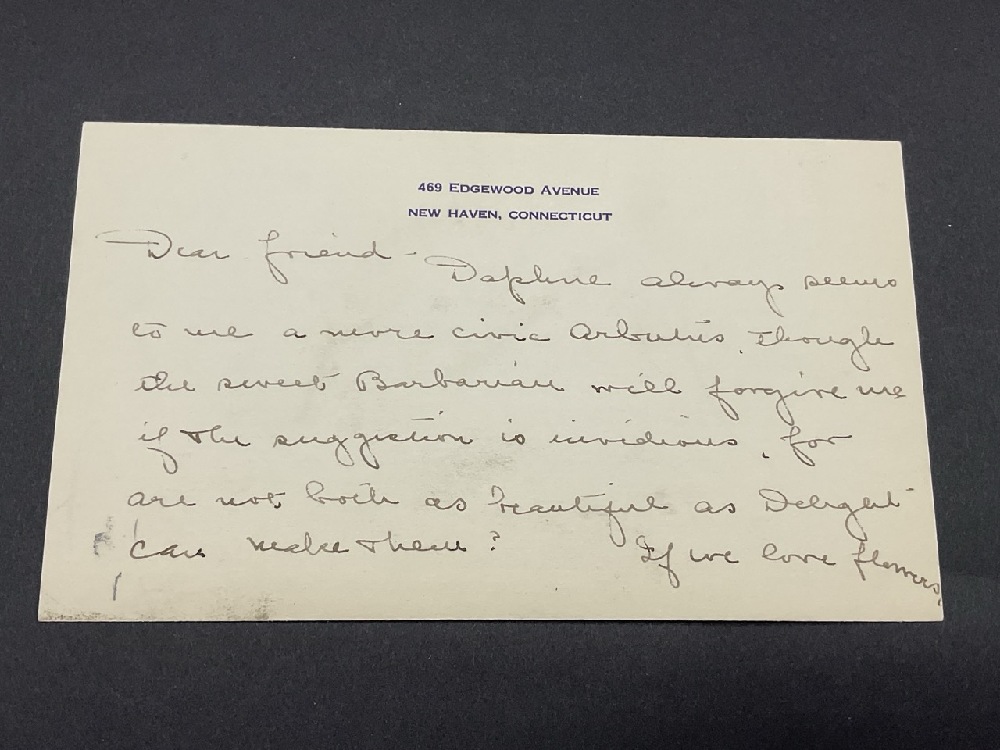 469 EDGEWOOD AVENUE
NEW HAVEN, CONNECTICUT
Dear friend -
Daphne always seems
to me a more civic Arbutus, though
the sweet Barbarian will forgive me
if the suggestion is invidious, for
are not both as beautiful as Delight
can make them? If we love flowers,